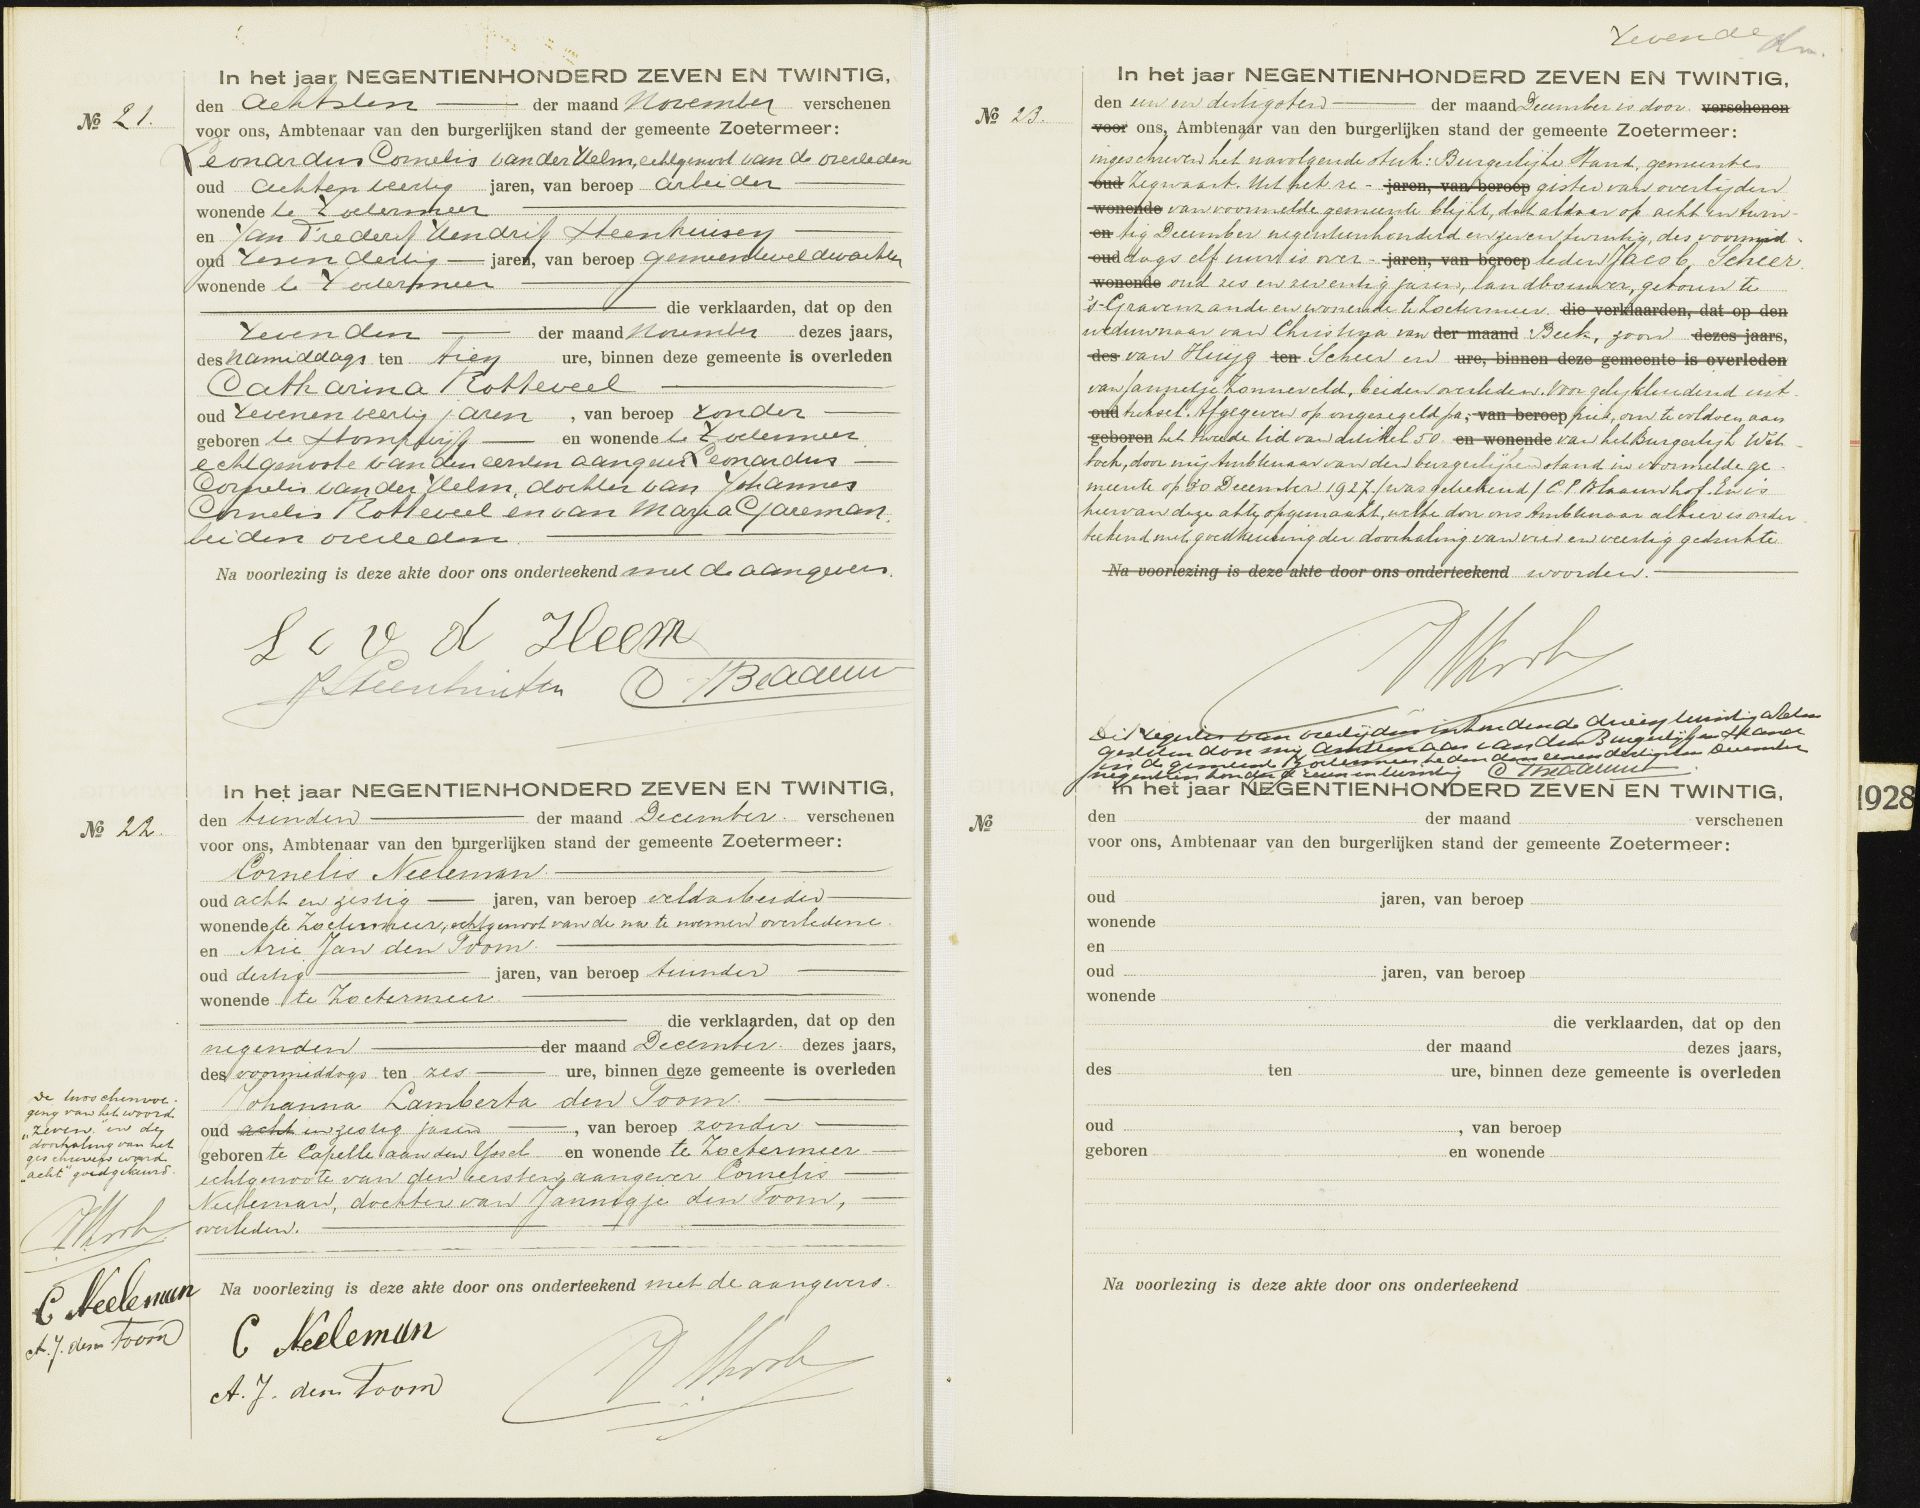 In het jaar NEGENTIENHONDERD ZEVEN EN TWINTIG,
№ 21.
den achtsten der maand November verschenen
voor ons, Ambtenaar van den burgerlijken stand der gemeente Zoetermeer:
Leonardus Cornelis van der Helm, echtgenoot van de overleden
oud achtenveertig jaren, van beroep arbeider
wonende te Zoetermeer
en Jan Frederik Hendrik Steenhuisen
oud zesendertig jaren, van beroep gemeenteveldwachter
wonende te Zoetermeer
die verklaarden, dat op den
zevenden der maand November dezes jaars,
des namiddags ten tien ure, binnen deze gemeente is overleden
Catharina Rotteveel
oud zevenenveertig jaren, van beroep zonder
geboren te Stompwijk en wonende te Zoetermeer
echtgenoote van den eersten aangever Leonardus
Cornelis van der Helm, dochter van Johannes
Cornelis Rotteveel en van Maria
beiden overleden.
Na voorlezing is deze akte door ons onderteekend met de aangevers.
L C v d Helm
In het jaar NEGENTIENHONDERD ZEVEN EN TWINTIG,
№ 22.
den tienden der maand December verschenen
voor ons, Ambtenaar van den burgerlijken stand der gemeente Zoetermeer:
Cornelis Neeleman
oud acht en zestig jaren, van beroep veldarbeider
wonende te Zoetermeer, echtgenoot van de na te noemen overledene
en Arie Jan den Toom
oud dertig jaren, van beroep tuinder
wonende te Zoetermeer
die verklaarden, dat op den
negenden der maand December dezes jaars,
des voormiddags ten zes ure, binnen deze gemeente is overleden
Johanna Lamberta den Toom
oud acht en zestig jaren, van beroep zonder
geboren te Capelle aan den Yssel en wonende te Zoetermeer
echtgenoote van den eersten aangever Cornelis
Neeleman, dochter van Jannigje den Toom,
overleden.
Na voorlezing is deze akte door ons onderteekend met de aangevers.
C Neeleman
A. J. den Toom
De tusschenvoe-
ging van het woord
"zeven" en de
doorhaling van het
geschreven woord
"acht" goedgekeurd.
C Neeleman
A. J. den Toom
Zevende
In het jaar NEGENTIENHONDERD ZEVEN EN TWINTIG,
№ 23.
den een en dertigsten der maand December is door verschenen
voor ons, Ambtenaar van den burgerlijken stand der gemeente Zoetermeer:
ingeschreven het navolgende stuk: Burgerlijke Stand, gemeente
oud Zegwaart. Uit het re- jaren, van beroep gister van overlijden
wonende van voormelde gemeente blijkt, dat aldaar op acht en twin-
en tig December negentienhonderd en zeven twintig, des voormid-
oud dags elf uur is over- jaren, van beroep leden Jacob Scheer
wonende oud zes en zeventig jaren, landbouwer, geboren te
's-Gravenzande en wonende te Zoetermeer die verklaarden, dat op den
weduwnaar van Christina van der maand Beek, zoon dezes jaars,
des van Huijg ten Scheer en ure, binnen deze gemeente is overleden
van Jannetje Zonneveld, beiden overleden. Voor gelijkluidend uit-
oud treksel. Afgegeven op ongezegeld pa- van beroep pier, om te voldoen aan
geboren het tweede lid van artikel 50 en wonende van het Burgerlijk Wet-
boek, door mij Ambtenaar van den burgerlijken stand in voormelde ge-
meente op 30 December 1927. (was geteekend) C P Blaauwhof. En is
hiervan deze akte opgemaakt, welke door ons Ambtenaar alhier is onder-
teekend met goedkeuring der doorhaling van vier en veertig gedrukte
Na voorlezing is deze akte door ons onderteekend woorden.
Dit register van overlijden inhoudende drie en twintig akten
gesloten door mij, ambtenaar van den Burgerlijken Stand
in de gemeente Zoetermeer, heden den eenendertigsten December
negentienhonderd zeven en twintig
In het jaar NEGENTIENHONDERD ZEVEN EN TWINTIG,
№
den der maand verschenen
voor ons, Ambtenaar van den burgerlijken stand der gemeente Zoetermeer:
oud jaren, van beroep
wonende
en
oud jaren, van beroep
wonende
die verklaarden, dat op den
der maand dezes jaars,
des ten ure, binnen deze gemeente is overleden
oud , van beroep
geboren en wonende
Na voorlezing is deze akte door ons onderteekend
1928